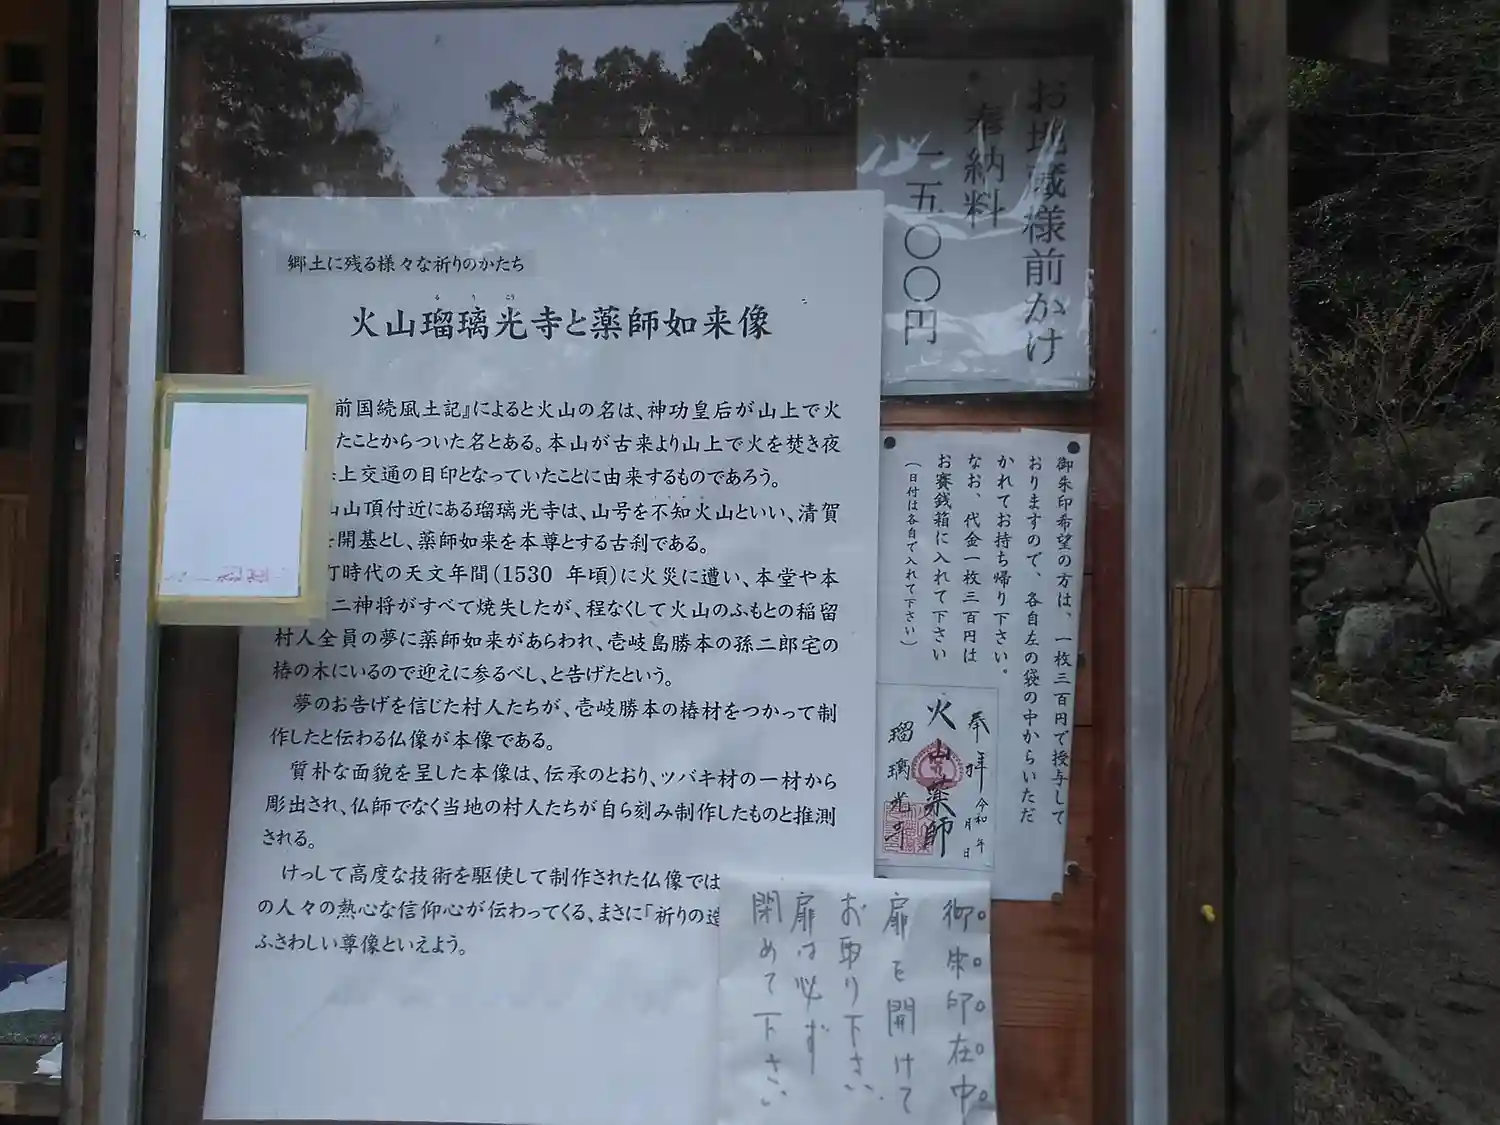 郷土に残る様々な祈りのかたち
る り こう
火山瑠璃光寺と薬師如来像
前国続風土記』によると火山の名は、神功皇后が山上で火
たことからついた名とある。本山が古来より山上で火を焚き夜
上交通の目印となっていたことに由来するものであろう。
山山頂付近にある瑠璃光寺は、山号を不知火山といい、清賀
を開基とし、薬師如来を本尊とする古刹である。
町時代の天文年間(1530 年頃)に火災に遭い、本堂や本
二神将がすべて焼失したが、程なくして火山のふもとの稲留
村人全員の夢に薬師如来があらわれ、壱岐島勝本の孫二郎宅の
椿の木にいるので迎えに参るべし、と告げたという。
夢のお告げを信じた村人たちが、壱岐勝本の椿材をつかって制
作したと伝わる仏像が本像である。
質朴な面貌を呈した本像は、伝承のとおり、ツバキ材の一材から
彫出され、仏師でなく当地の村人たちが自ら刻み制作したものと推測
される。
けっして高度な技術を駆使して制作された仏像では
の人々の熱心な信仰心が伝わってくる、まさに「祈りの造
ふさわしい尊像といえよう。
お地蔵様前かけ
奉納料
一五〇〇円
御朱印希望の方は、一枚三百円で授与して
おりますので、各自左の袋の中からいただ
かれてお持ち帰り下さい。
なお、代金一枚三百円は
お賽銭箱に入れて下さい
(日付は各自で入れて下さい)
奉拝 令和 年 月 日
火山薬師
瑠璃光寺
御朱印在中
扉を開けて
お取り下さい
扉は必ず
閉めて下さい